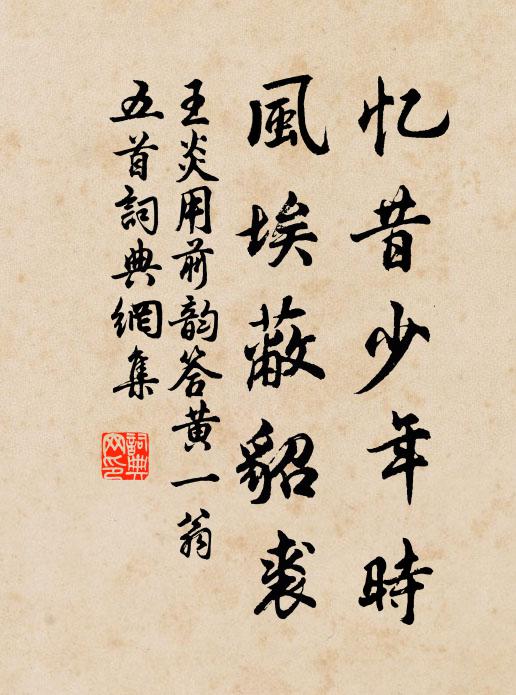 忆昔少年時
風埃蔽貂裘
王炎用前韵答黄一翁
五首詞典網集
詞典网印